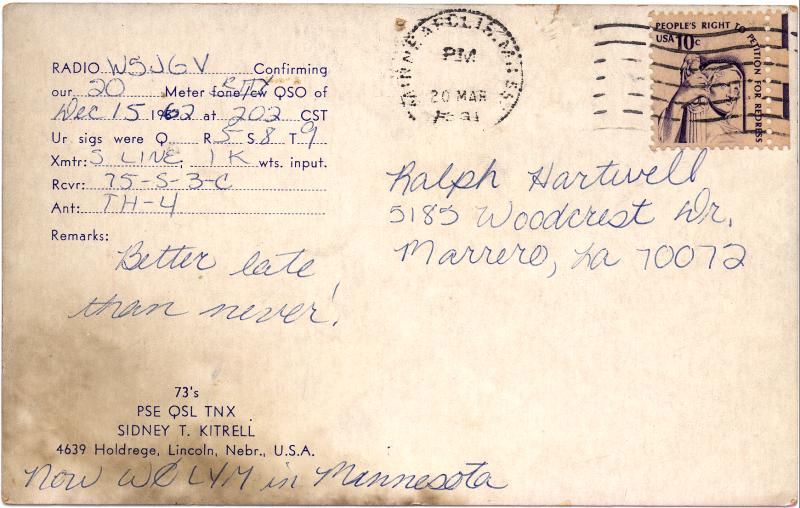 RADIO W5JGV Confirming
our 20 Meter fone/cw RTTY QSO of
Dec 15 1962 at 202 CST
Ur sigs were Q R5 S8 T9
Xmtr: S LINE, 1K wts. input.
Rcvr: 75-S-3-C
Ant: TH-4
Remarks:
Better late
than never!
73's
PSE QSL TNX
SIDNEY T. KITRELL
4639 Holdrege, Lincoln, Nebr., U.S.A.
Now WØLYM in Minnesota
PM
20 MAR
PEOPLE'S RIGHT TO PETITION FOR REDRESS
USA 10c
Ralph Hartwell
5185 Woodcrest Dr.
Marrero, La 70072